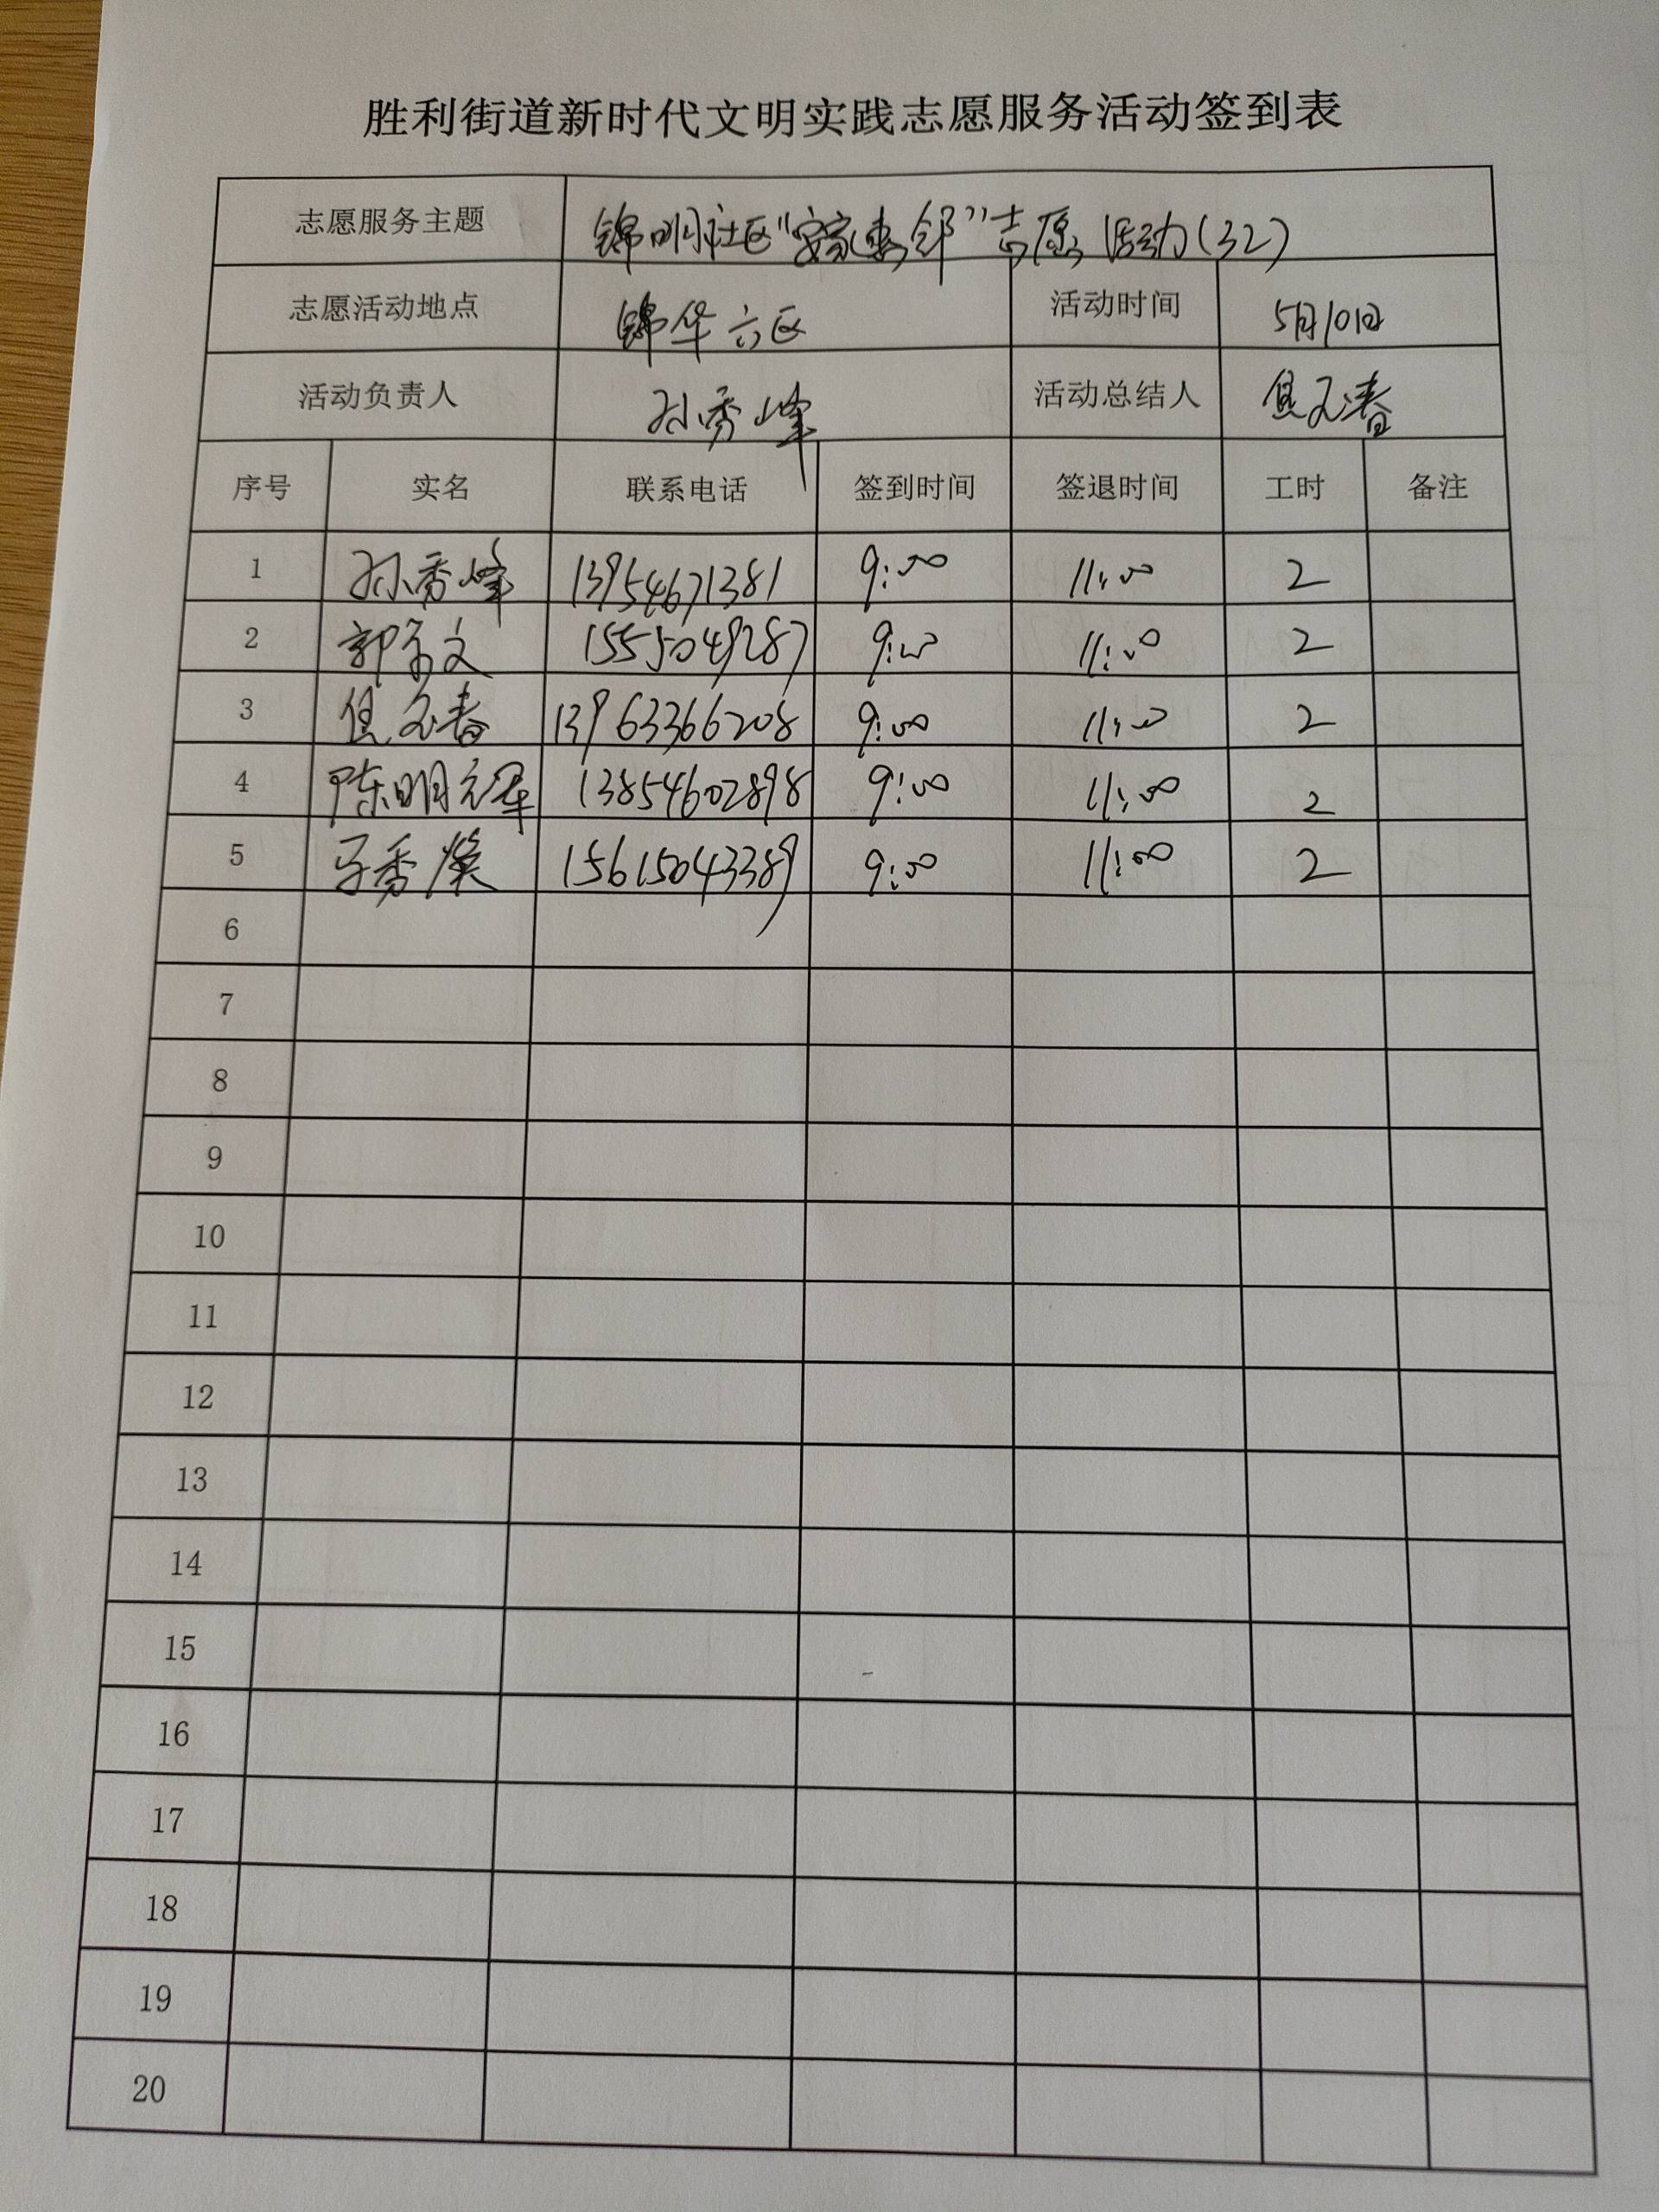 胜利街道新时代文明实践志愿服务活动签到表
志愿服务主题 锦明社区“安家惠邻”志愿活动(32)
志愿活动地点 锦华六区 活动时间 5月10日
活动负责人 孙秀峰 活动总结人 焦玉春
序号 实名 联系电话 签到时间 签退时间 工时 备注
1 孙秀峰 13954671381 9:00 11:00 2
2 郭 文 1555049287 9:00 11:00 2
3 焦玉春 13963366208 9:00 11:00 2
4 陈明 13854602898 9:00 11:00 2
5 马秀焕 15615043389 9:00 11:00 2
6
7
8
9
10
11
12
13
14
15
16
17
18
19
20